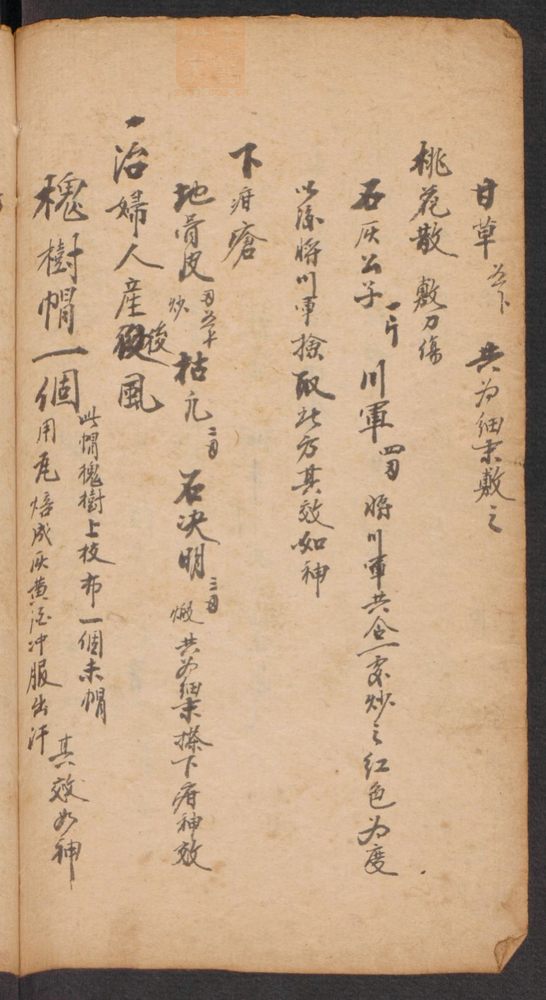 甘草 共为細末敷之
桃花散 敷刀傷
石灰公子 一斤 川軍 四刄 将川軍共仝一處炒之红色为度
以後将川軍撿取此方其效如神
下疳瘡
地骨皮 炒 枯凡 二刄 石决明 三刄 煅 共为細末搽下疳神效
治婦人産後風
槐樹帽一個 此帽槐樹上枝布一個末帽
用瓦焙成灰黄酒冲服出汗 其效如神